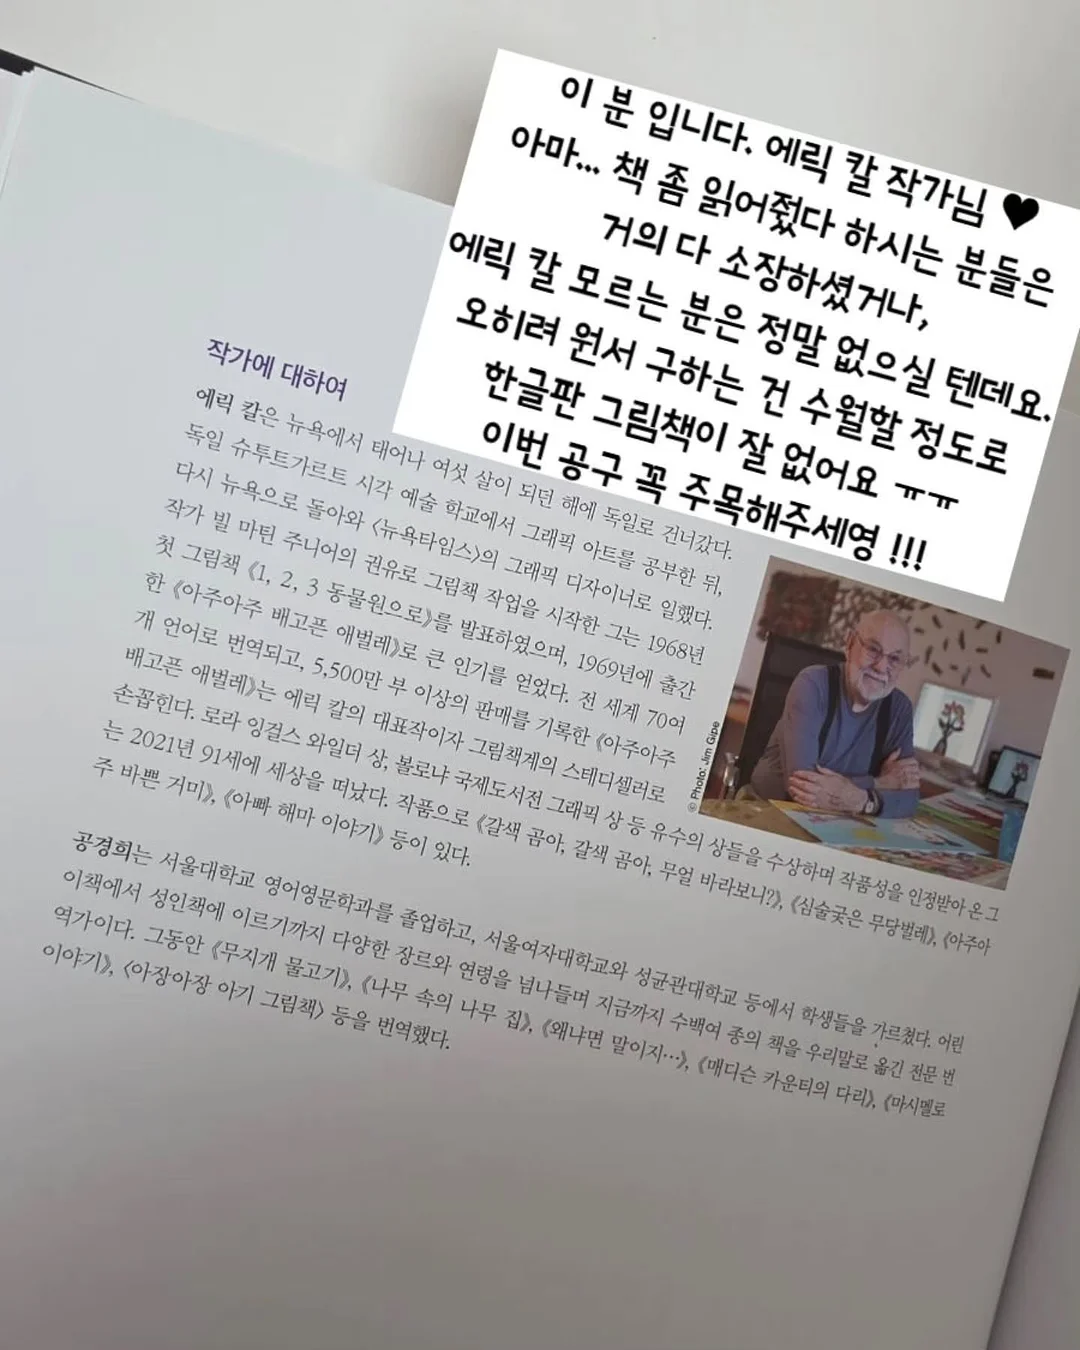 이 분 입니다. 에릭 칼 작가님 ♥
아마... 책 좀 읽어줬다 하시는 분들은
거의 다 소장하셨거나,
에릭 칼 모르는 분은 정말 없으실 텐데요.
오히려 원서 구하는 건 수월할 정도로
한글판 그림책이 잘 없어요 ㅠㅠ
이번 공구 꼭 주목해주세영 !!!
작가에 대하여
에릭 칼은 뉴욕에서 태어나 여섯 살이 되던 해에 독일로 건너갔다.
독일 슈투트가르트 시각 예술 학교에서 그래픽 아트를 공부한 뒤,
다시 뉴욕으로 돌아와 〈뉴욕타임스〉의 그래픽 디자이너로 일했다.
작가 빌 마틴 주니어의 권유로 그림책 작업을 시작한 그는 1968년
첫 그림책 《1, 2, 3 동물원으로》를 발표하였으며, 1969년에 출간
한 《아주아주 배고픈 애벌레》로 큰 인기를 얻었다. 전 세계 70여
개 언어로 번역되고, 5,500만 부 이상의 판매를 기록한 《아주아주
배고픈 애벌레》는 에릭 칼의 대표작이자 그림책계의 스테디셀러로
손꼽힌다. 로라 잉걸스 와일더 상, 볼로냐 국제도서전 그래픽 상 등 유수의 상들을 수상하며 작품성을 인정받아 온 그
는 2021년 91세에 세상을 떠났다. 작품으로 《갈색 곰아, 갈색 곰아, 무얼 바라보니?》, 《심술궂은 무당벌레》, 《아주아
주 바쁜 거미》, 《아빠 해마 이야기》 등이 있다.
© Photo: Jim Gipe
공경희는 서울대학교 영어영문학과를 졸업하고, 서울여자대학교와 성균관대학교 등에서 학생들을 가르쳤다. 어린
이책에서 성인책에 이르기까지 다양한 장르와 연령을 넘나들며 지금까지 수백여 종의 책을 우리말로 옮긴 전문 번
역가이다. 그동안 《무지개 물고기》, 《나무 속의 나무 집》, 《왜냐면 말이지…》, 《매디슨 카운티의 다리》, 《마시멜로
이야기》, 〈아장아장 아기 그림책〉 등을 번역했다.